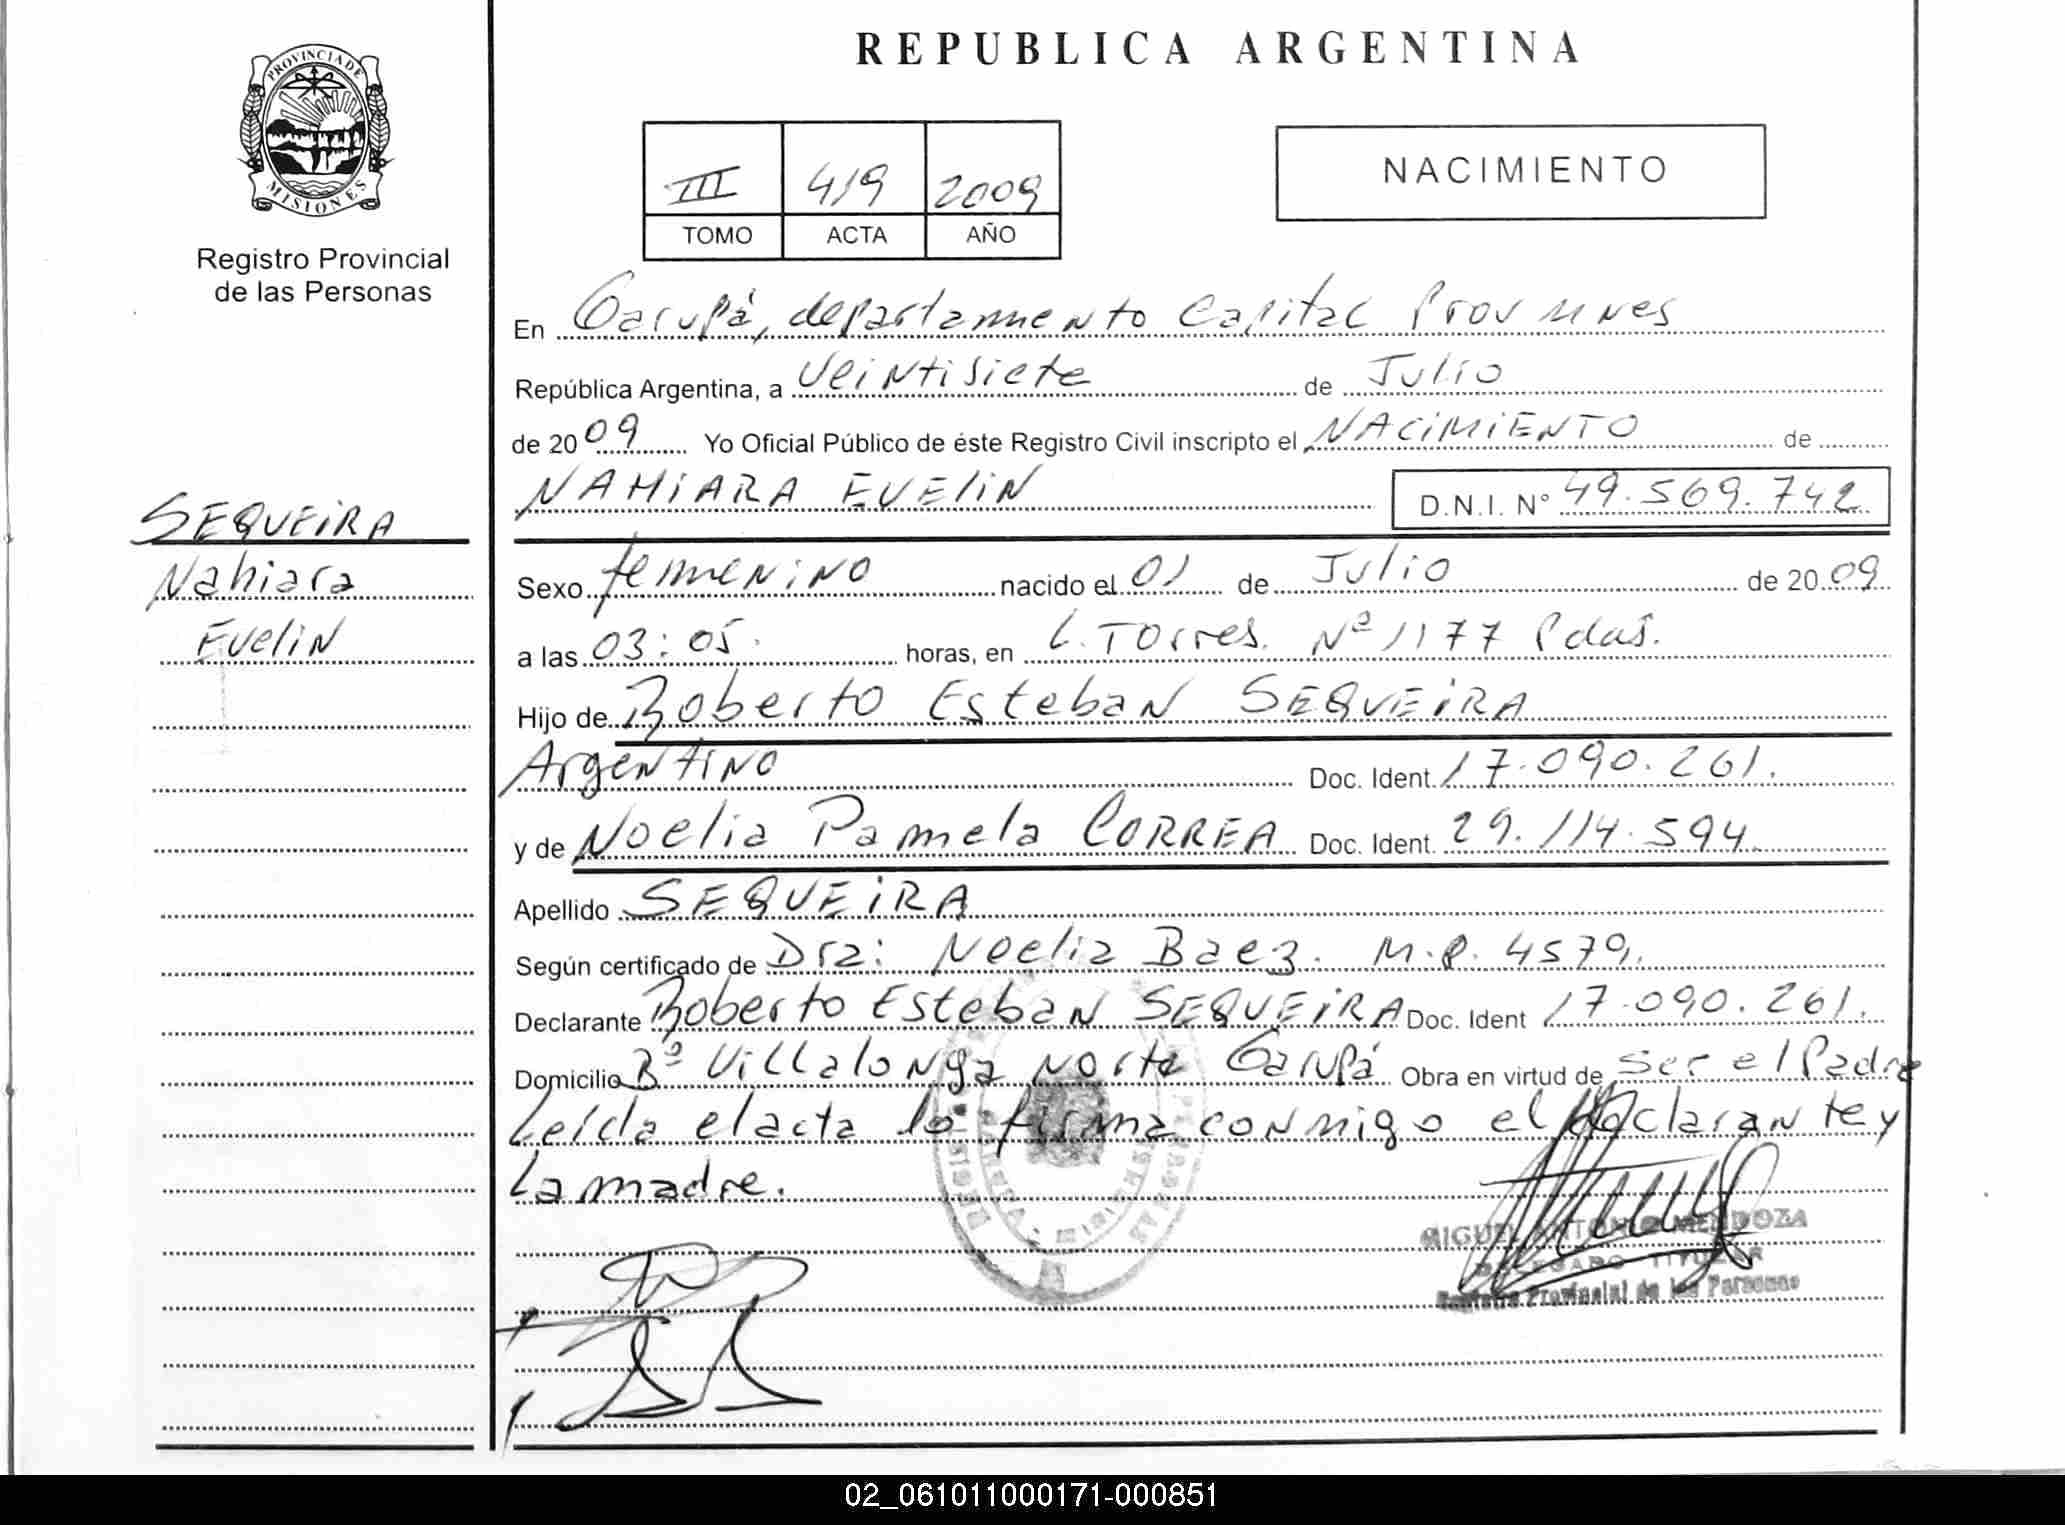 REPUBLICA ARGENTINA
PROVINCIA DE
MISIONES
Registro Provincial
de las Personas
III 419 2009
TOMO ACTA AÑO
NACIMIENTO
En Garupá, departamento Capital Prov
República Argentina, a Veintisiete de Julio
de 2009 Yo Oficial Público de éste Registro Civil inscripto el NACIMIENTO de
NAHIARA EVELIN D.N.I. Nº 49.569.742
SEQUEIRA
Nahiara
Evelin
Sexo femenino nacido el 01 de Julio de 2009
a las 03:05. horas, en L. Torres. Nº 1177 Pdas.
Hijo de Roberto Esteban SEQUEIRA
Argentino Doc. Ident. 17.090.261.
y de Noelia Pamela CORREA Doc. Ident. 29.114.594
Apellido SEQUEIRA
Según certificado de Dra: Noelia Baez. M.P. 4579.
Declarante Roberto Esteban SEQUEIRA Doc. Ident 17.090.261.
Domicilio Bº Villalonga Norte Garupá Obra en virtud de ser el Padre
Leída el acta la firma conmigo el declarante y
la madre.
MIGUEL ANTONIO MENDOZA
DELEGADO TITULAR
Registro Provincial de las Personas
02_061011000171-000851